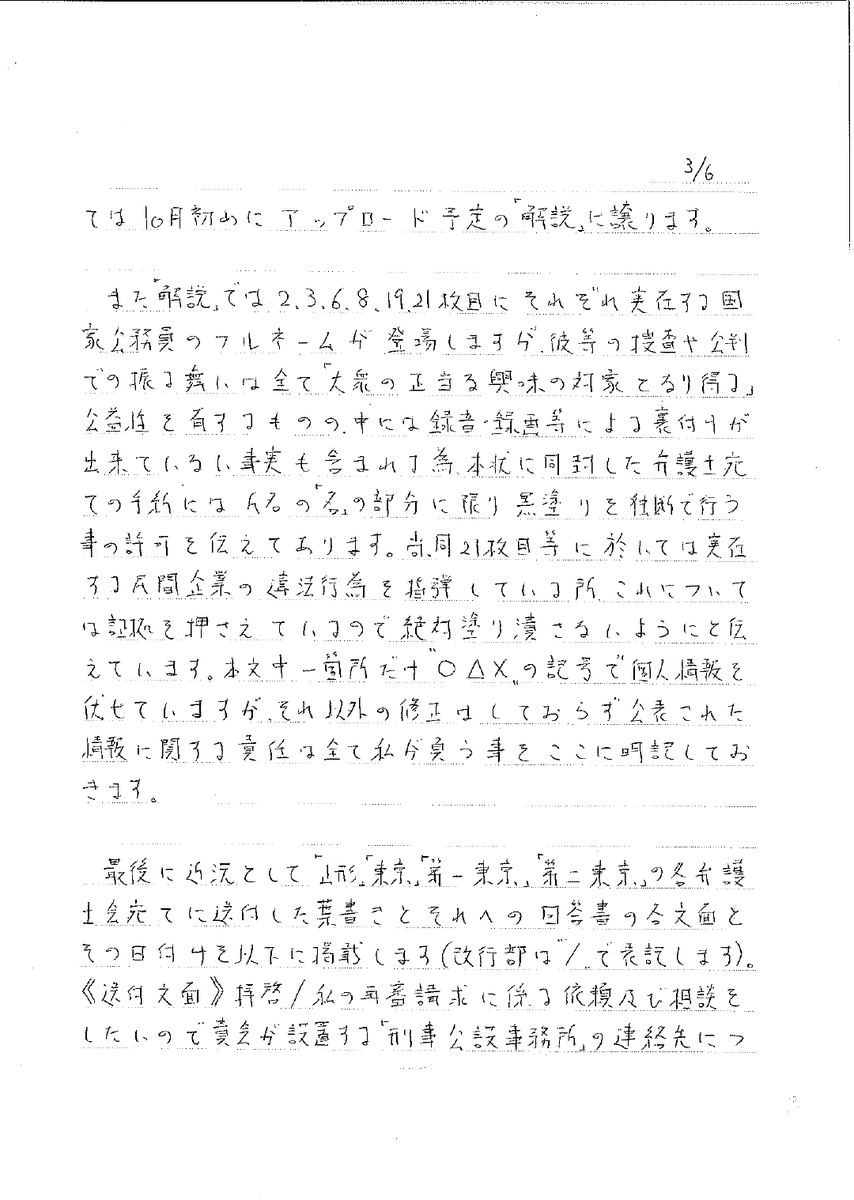 3/6
ては10月初めにアップロード予定の「解説」に譲ります。
また「解説」では2、3、6、8、19、21枚目にそれぞれ実在する国
家公務員のフルネームが登場しますが、彼等の捜査や公判
での振る舞いは全て「大衆の正当な興味の対象となり得る」
公益性を有するものの、中には録音・録画等による裏付けが
出来ていない事実も含まれる為、本状に同封した弁護士宛
ての手紙には氏名の「名」の部分に限り黒塗りを独断で行う
事の許可を伝えてあります。尚、同21枚目等に於いては実在
する民間企業の違法行為を指弾している所、これについて
は証拠を押さえているので絶対塗り潰さないようにと伝
えています。本文中一箇所だけ〝○△×〟の記号で個人情報を
伏せていますが、それ以外の修正はしておらず公表された
情報に関する責任は全て私が負う事をここに明記してお
きます。
最後に近況として「山形」「東京」「第一東京」「第二東京」の各弁護
士会宛てに送付した葉書きとそれへの回答書の各文面と
その日付けを以下に掲載します(改行部は〝/〟で表記します)。
《送付文面》拝啓/私の再審請求に係る依頼及び相談を
したいので貴会が設置する「刑事公設事務所」の連絡先につ